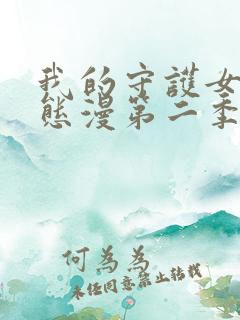 我的守護女
態漫第二季
何為為
未經同意禁止转載